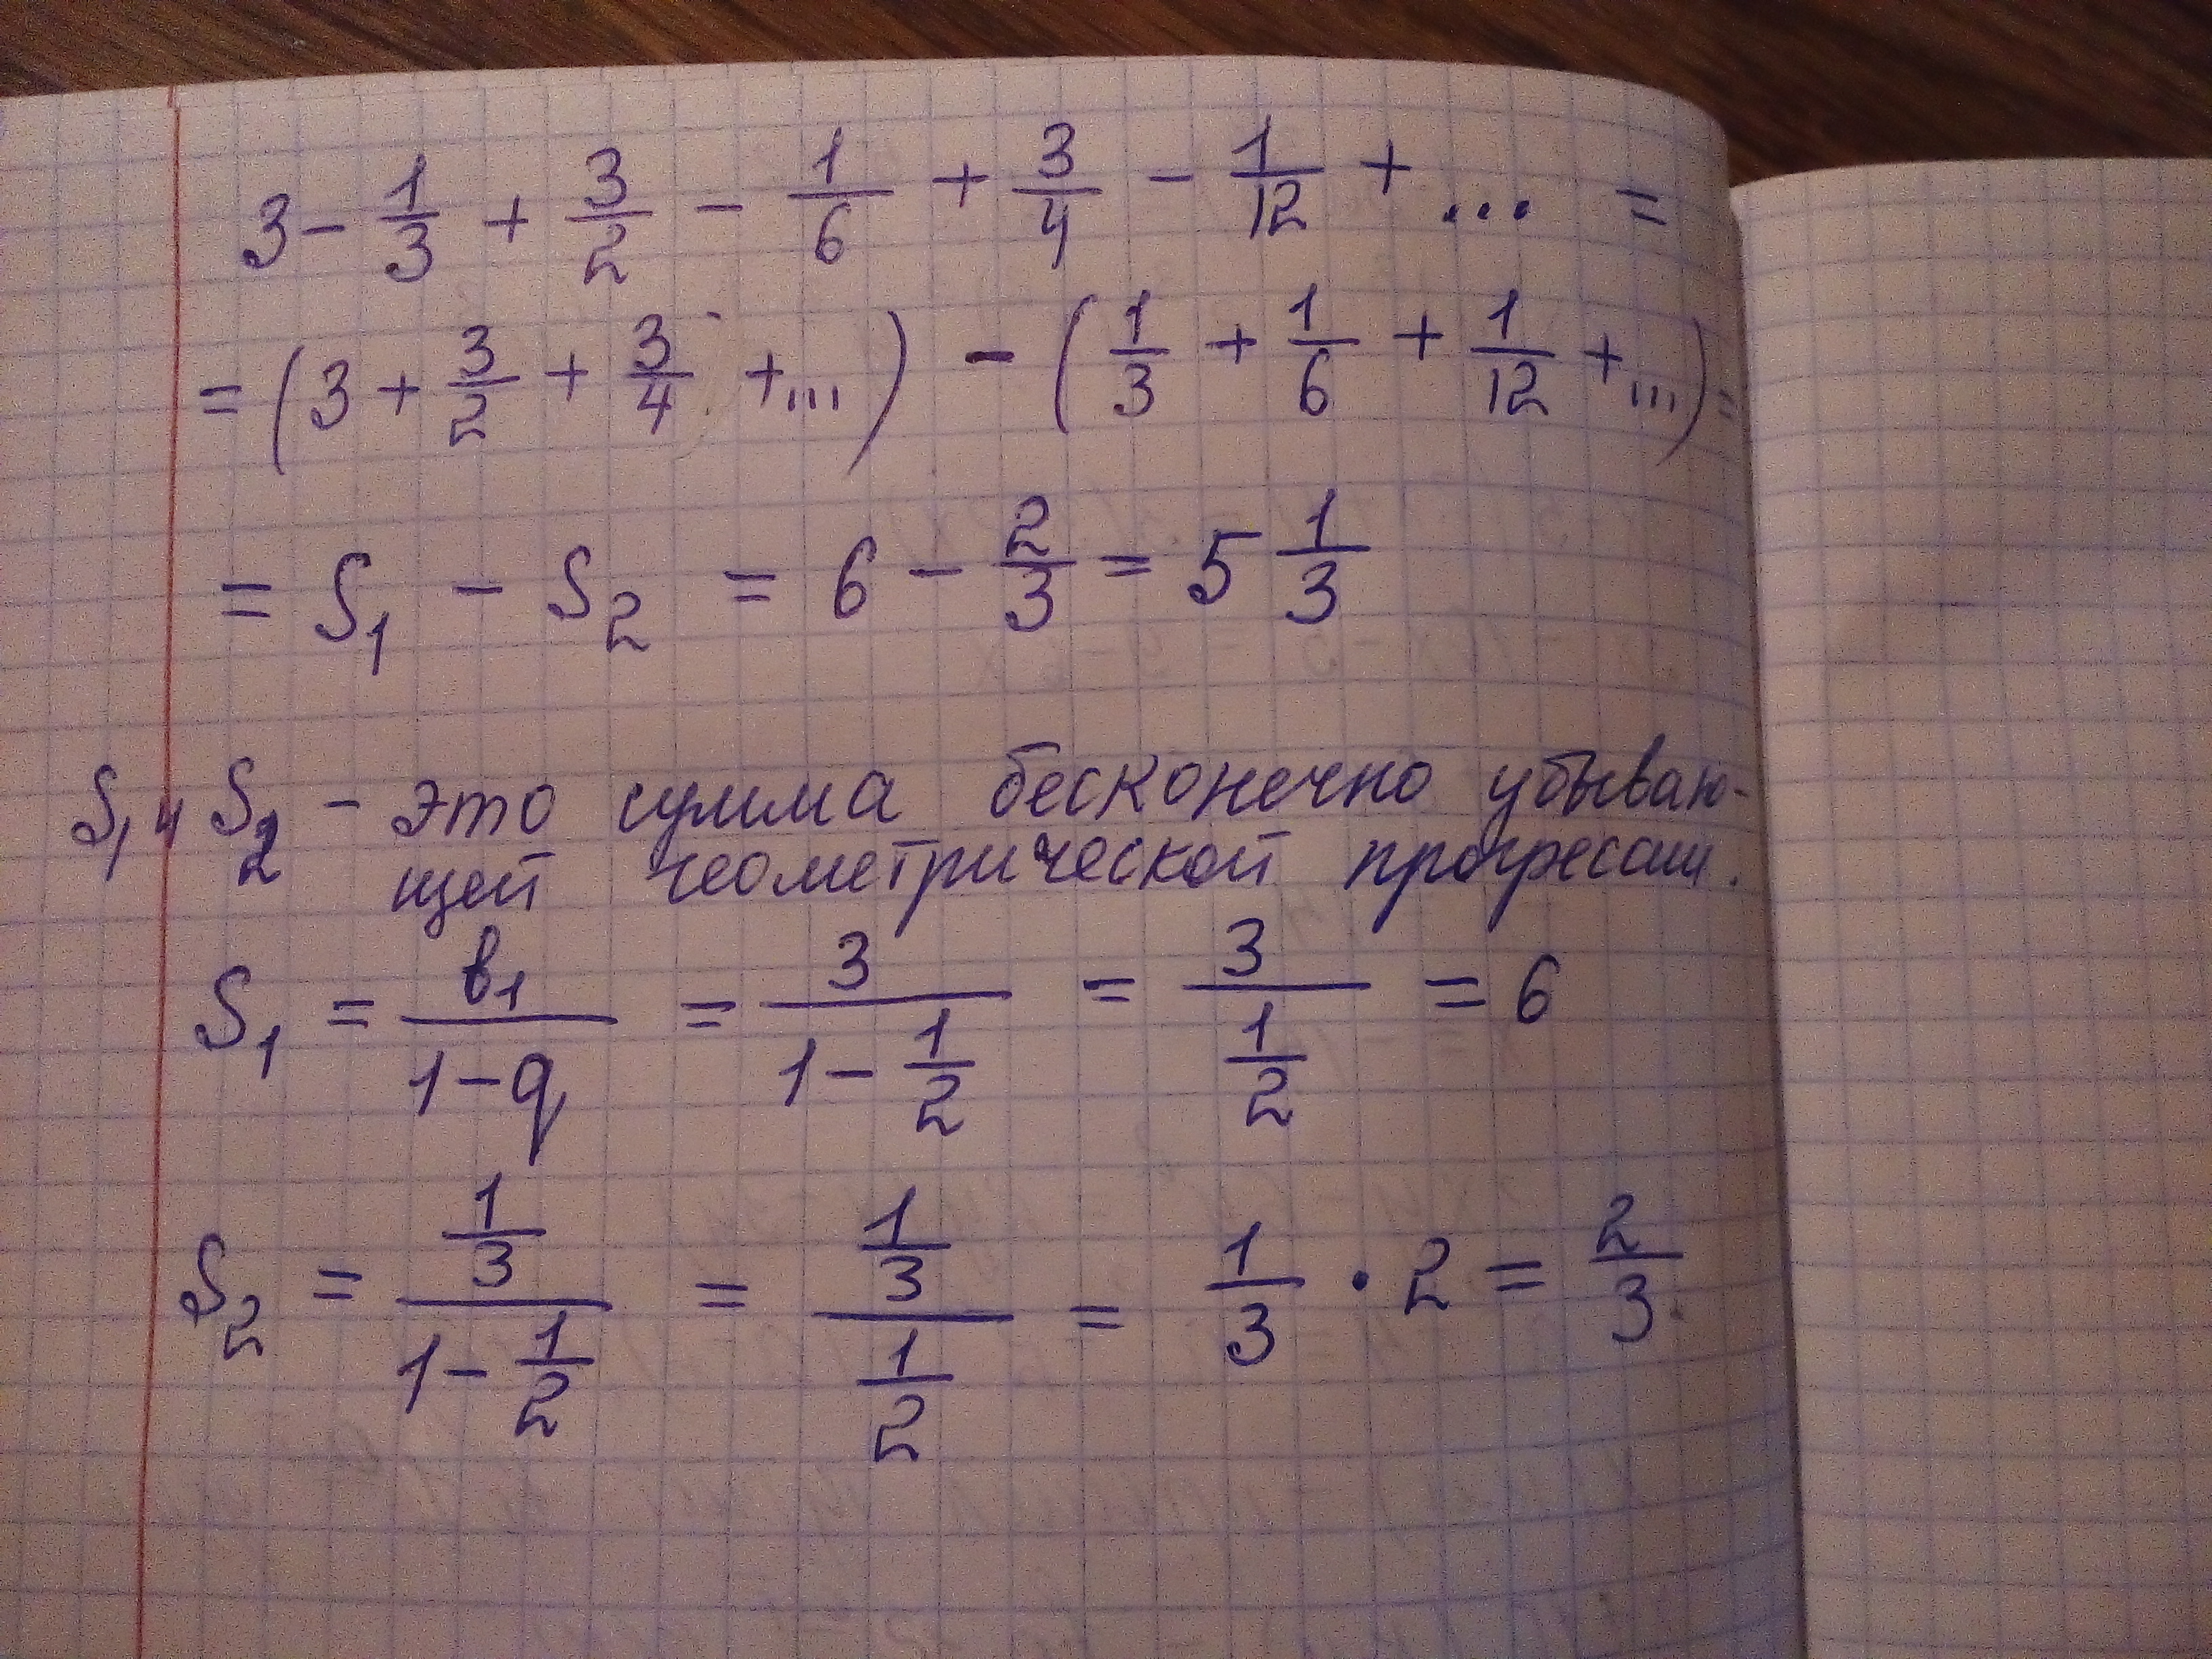 3 - 1/3 + 3/2 - 1/6 + 3/4 - 1/12 + ... =
= (3 + 3/2 + 3/4 + ...) - (1/3 + 1/6 + 1/12 + ...) =
= S₁ - S₂ = 6 - 2/3 = 5 1/3
S₁ и S₂ - это сумма бесконечно убываю-
щей геометрической прогрессии.
S₁ = в₁/(1-q) = 3/(1 - 1/2) = 3/(1/2) = 6
S₂ = (1/3)/(1 - 1/2) = (1/3)/(1/2) = 1/3 · 2 = 2/3